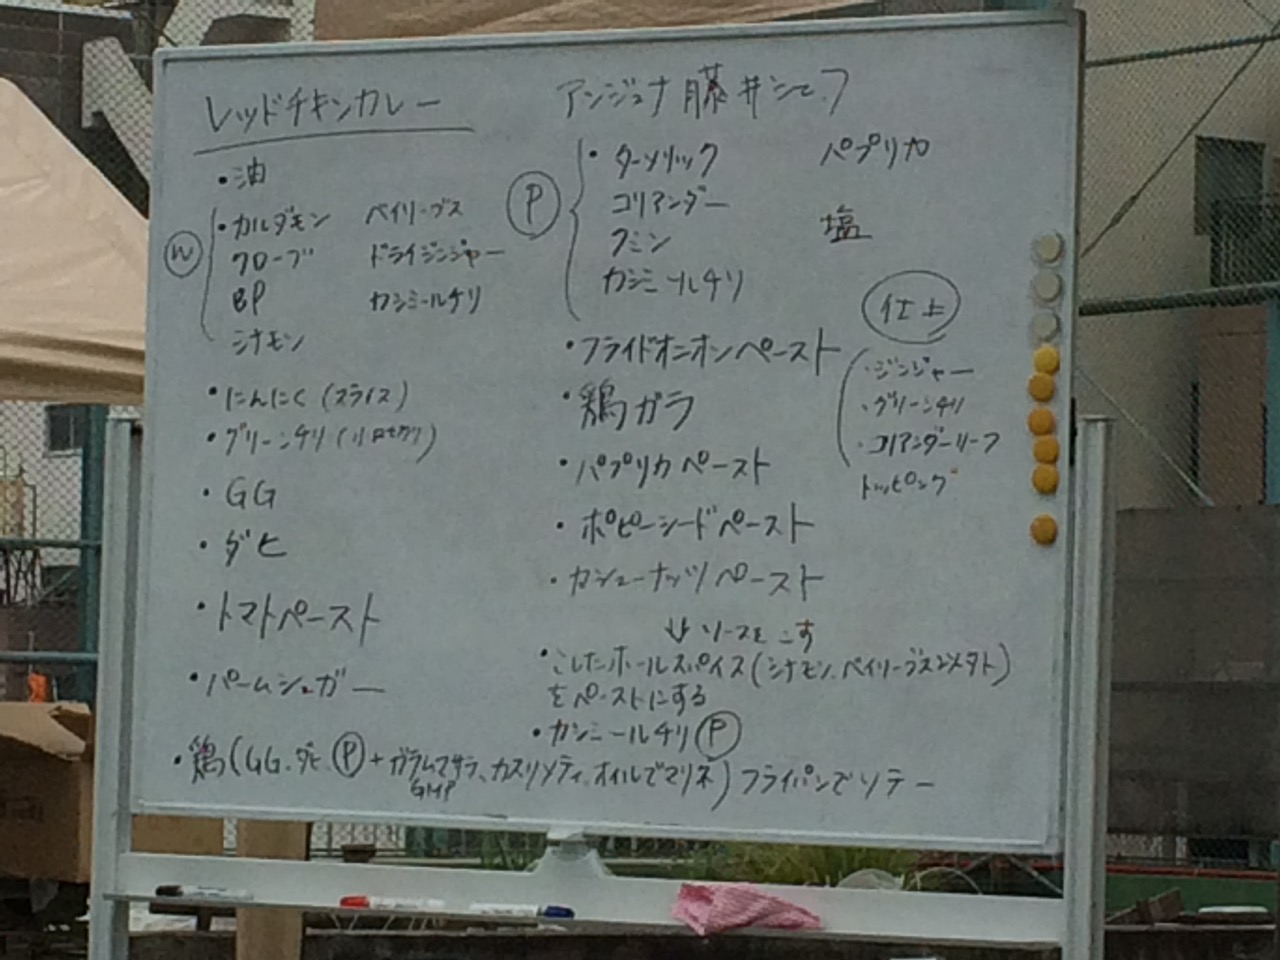 レッドチキンカレー
アンジュナ 藤井シェフ
・油
Ⓦ
・カルダモン ベイリーブス
クローブ ドライジンジャー
BP カシミールチリ
シナモン
・にんにく(スライス)
・グリーンチリ(小口切り)
・GG
・ダヒ
・トマトペースト
・パームシュガー
・鶏(GG、ダヒ、Ⓟ+ガラムマサラ、カスリメティ、オイルでマリネ)フライパンでソテー
GMP
Ⓟ
・ターメリック パプリカ
コリアンダー 塩
クミン
カシミールチリ
・フライドオニオンペースト
・鶏ガラ
・パプリカペースト
・ポピーシードペースト
・カシューナッツペースト
↓ソースをこす
・こしたホールスパイス(シナモン、ベイリーブス
をペーストにする
・カシミールチリⓅ
仕上
・ジンジャー
・グリーンチリ
・コリアンダーリーフ
トッピング